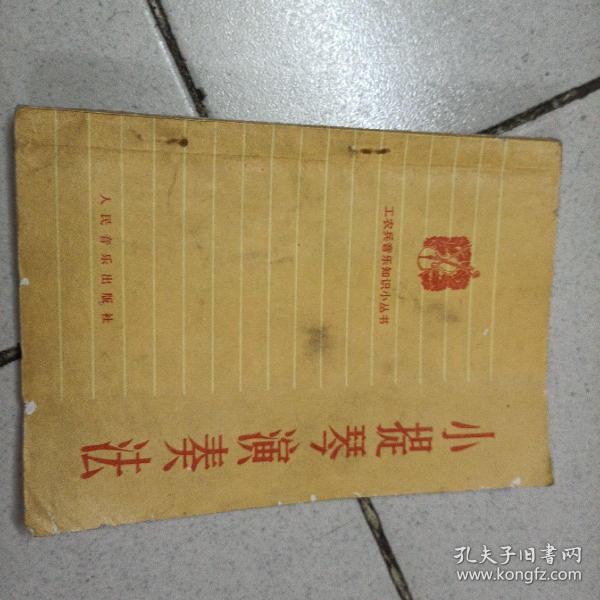 工农兵音乐知识小丛书
小提琴演奏法
人民音乐出版社
孔夫子旧书网
www.kongfz.com